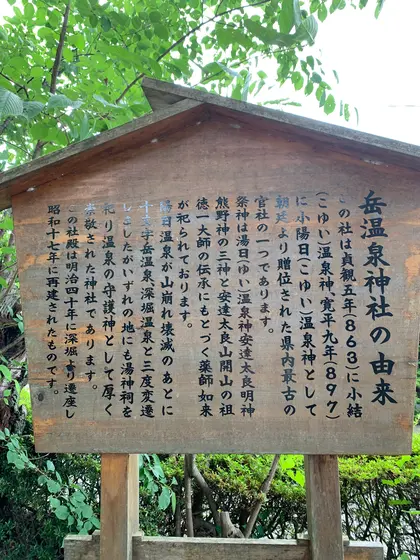 岳温泉神社の由来
この社は貞観五年(863)に小結
(こゆい)温泉神 寛平九年(897)
に小陽日(こゆい)温泉神として
朝廷より贈位された県内最古の
官社の一つであります。
祭神は湯日(ゆい)温泉神安達太良明神
熊野神の三神と安達太良山開山の祖
徳一大師の伝承にもとづく薬師如来
が祀られております。
湯日温泉が山崩れ壊滅のあとに
十文字岳温泉、深堀温泉と三度変遷
しましたがいずれの地にも湯神祠を
祀り温泉の守護神として厚く
崇敬された神社であります。
この社殿は明治四十年に深堀より遷座し
昭和十七年に再建されたものです。